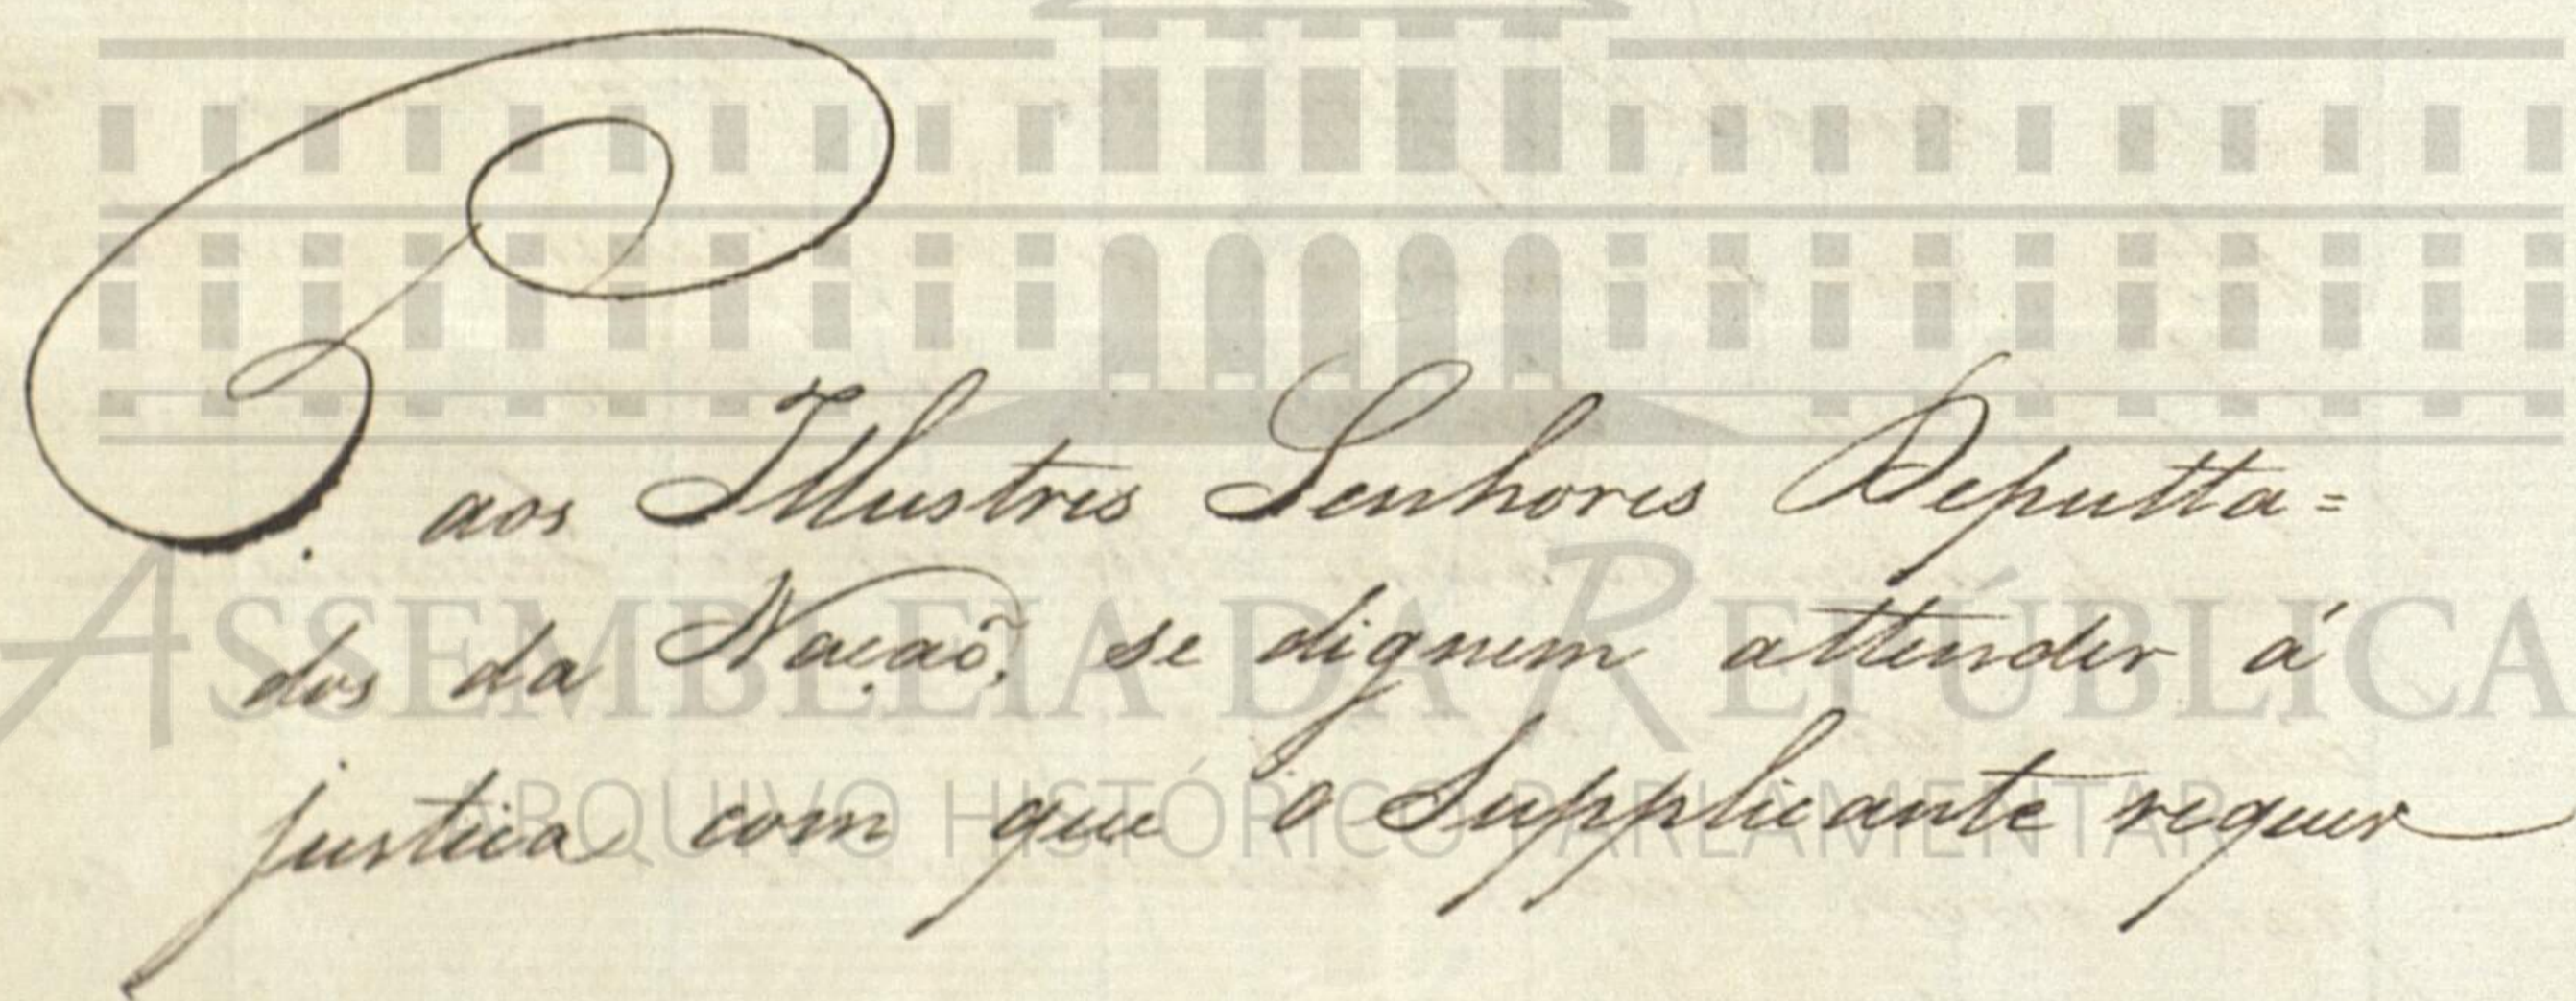 P. aos Illustres Senhores Deputta=
dos da Nação, se dignem attender á
justiça com que o Supplicante requer
ASSEMBLEIA DA REPÚBLICA
ARQUIVO HISTÓRICO PARLAMENTAR